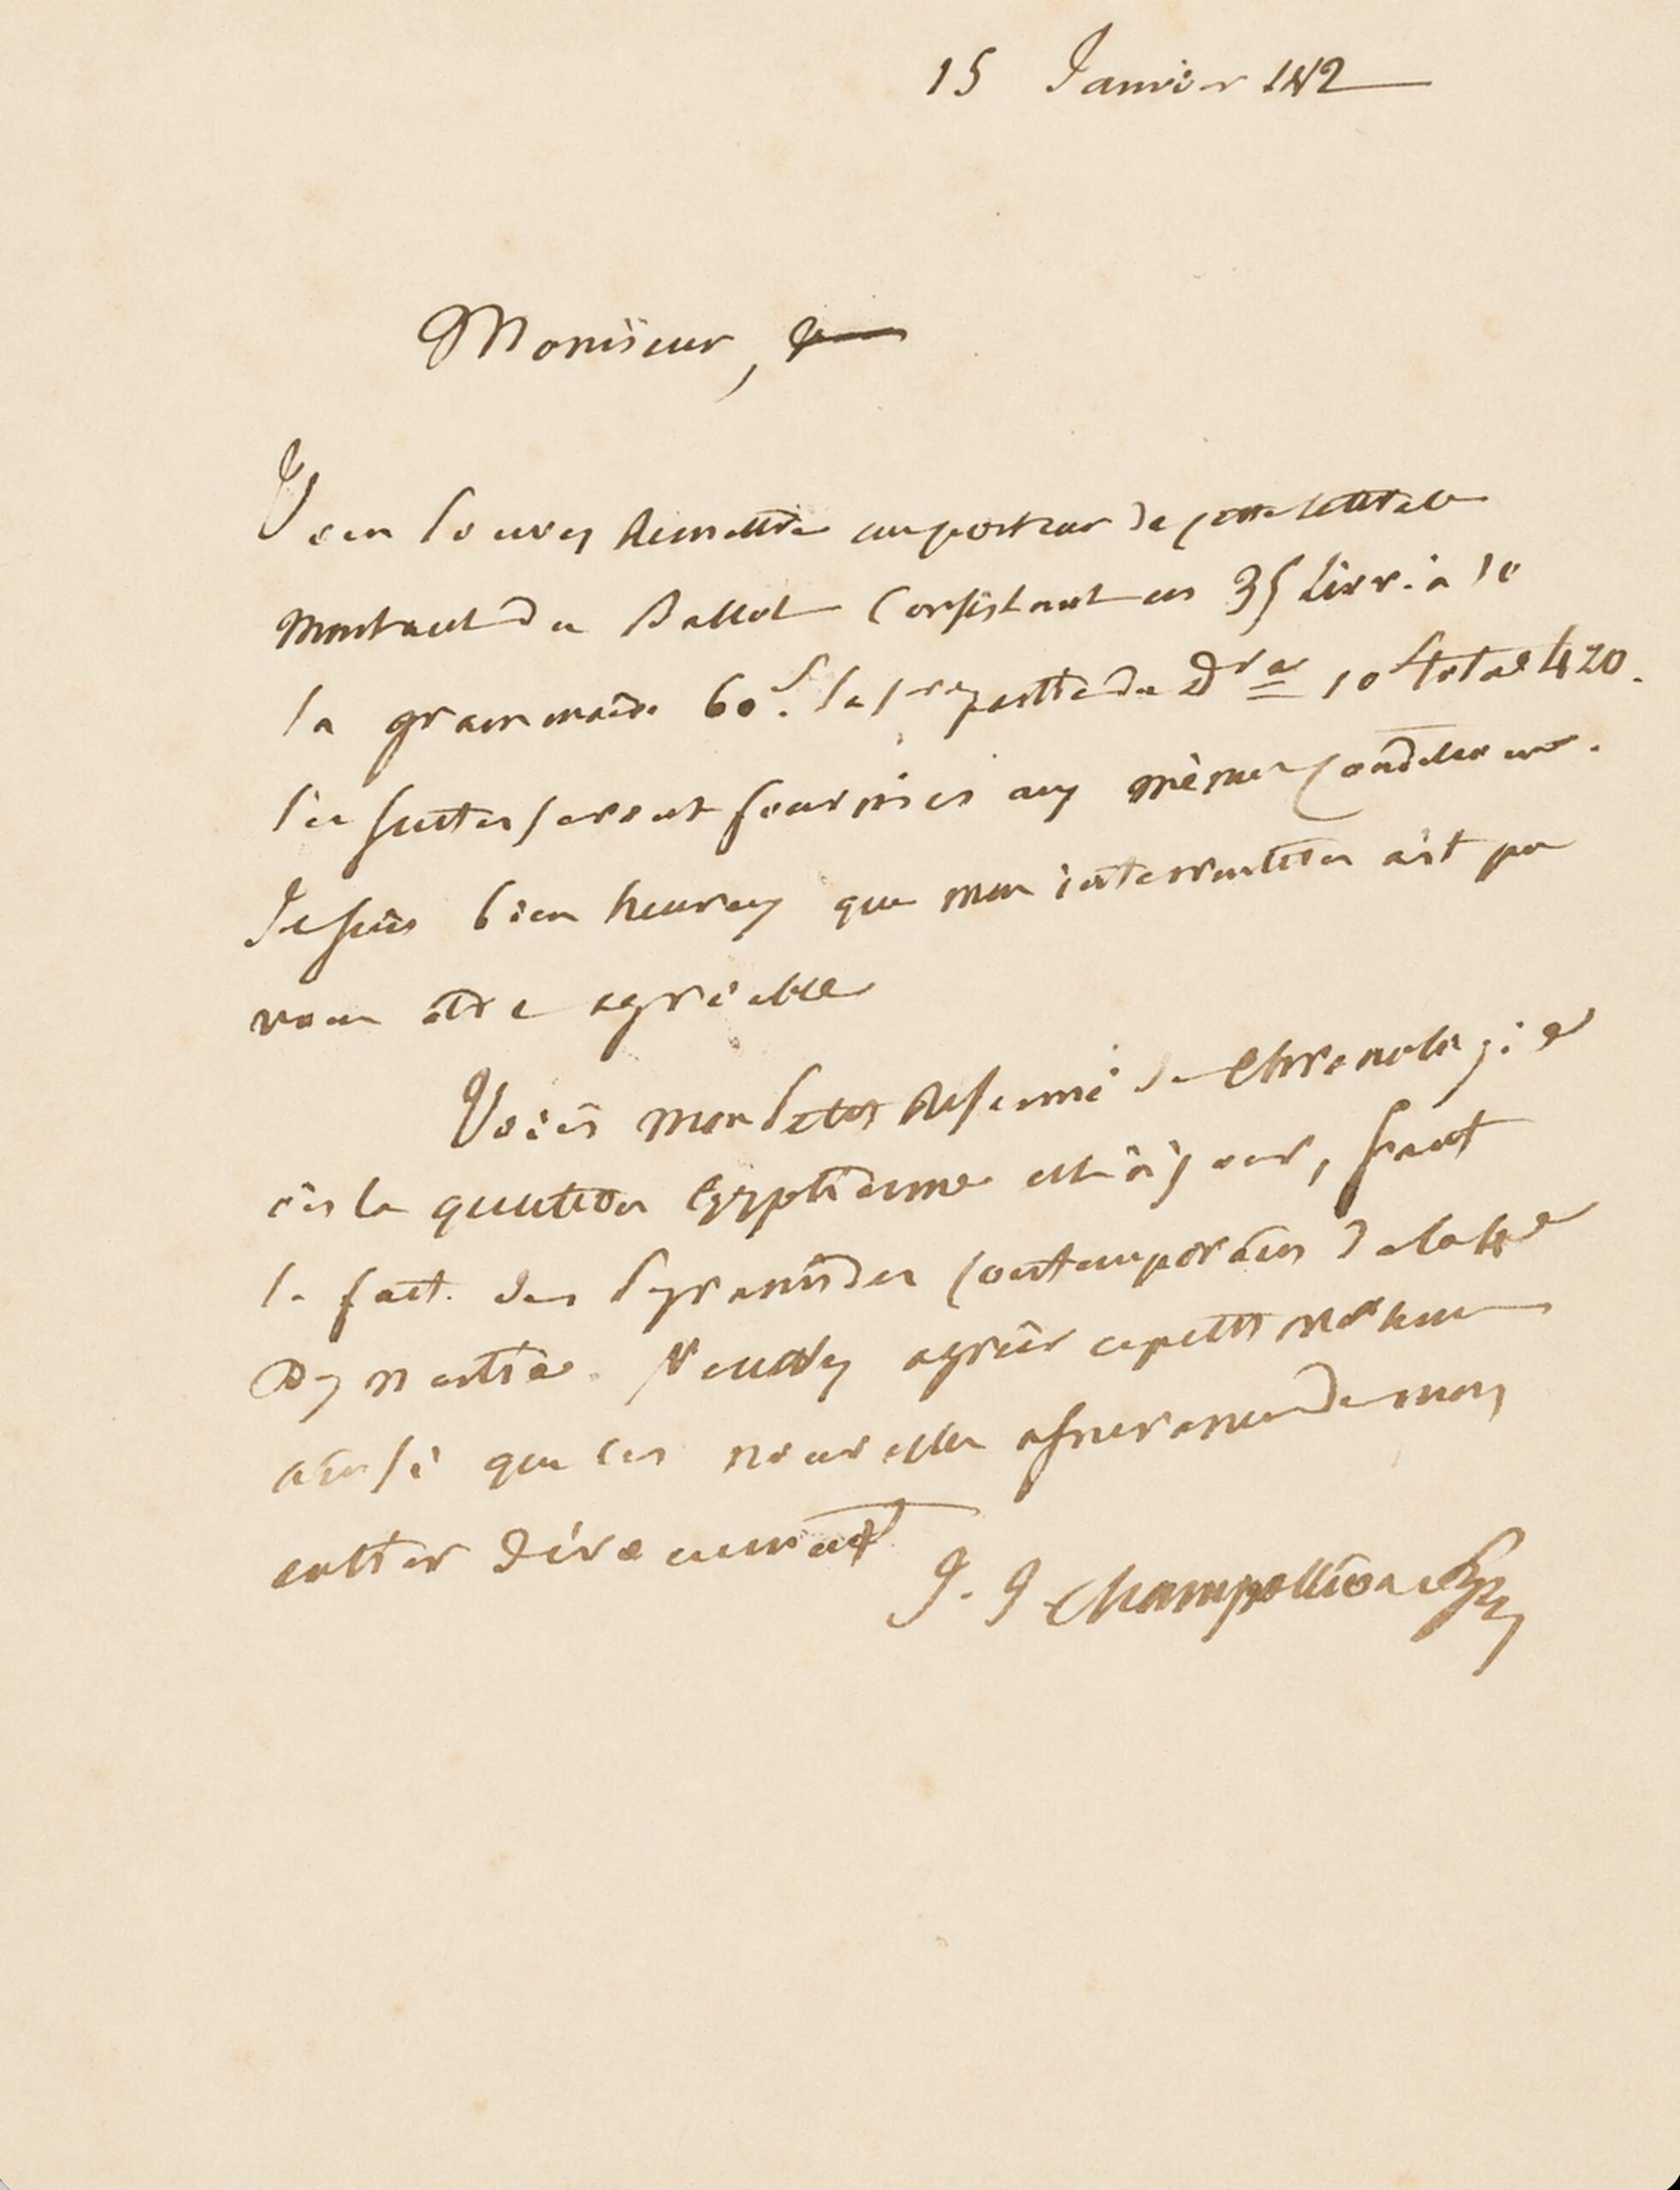 15 Janvier 1842
Monsieur,
Vous pouvez remettre au porteur de cette lettre le
montant du Ballot consistant en 35 Livr. à 10
la grammaire 60f. la 1re partie du Dre 10f total 420.
les suites seront fournies aux mêmes conditions.
Je suis bien heureux que mon intervention ait pu
vous être agréable
Voici mon petit résumé de Chronologie
où la question Égyptienne est à jour, sauf
le fait des Pyramides contemporaines de la 4e
Dynastie. Veuillez agréer ce petit volume
ainsi que les nouvelles assurances de mon
entier dévouement
J. J Champollion figeac